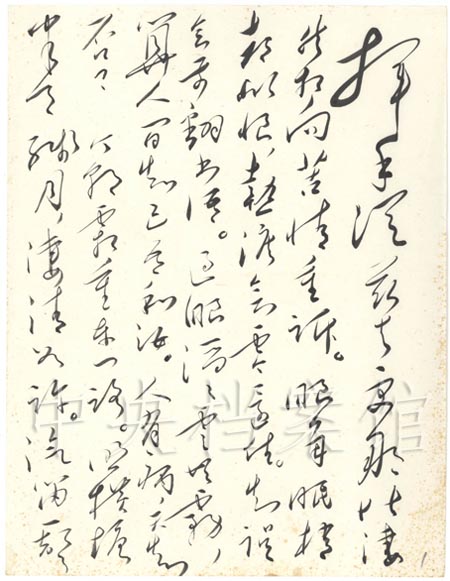 挥手从兹去更那堪凄
然相向,苦情重诉。眼角眉梢
都似恨,热泪欲零还住。知误
会前翻书语。过眼滔滔云共雾,
算人间知己吾和汝。人有病,天知
否?今朝霜重东门路。照横塘
半天残月,凄清如许。汽笛一声
中央档案馆
1